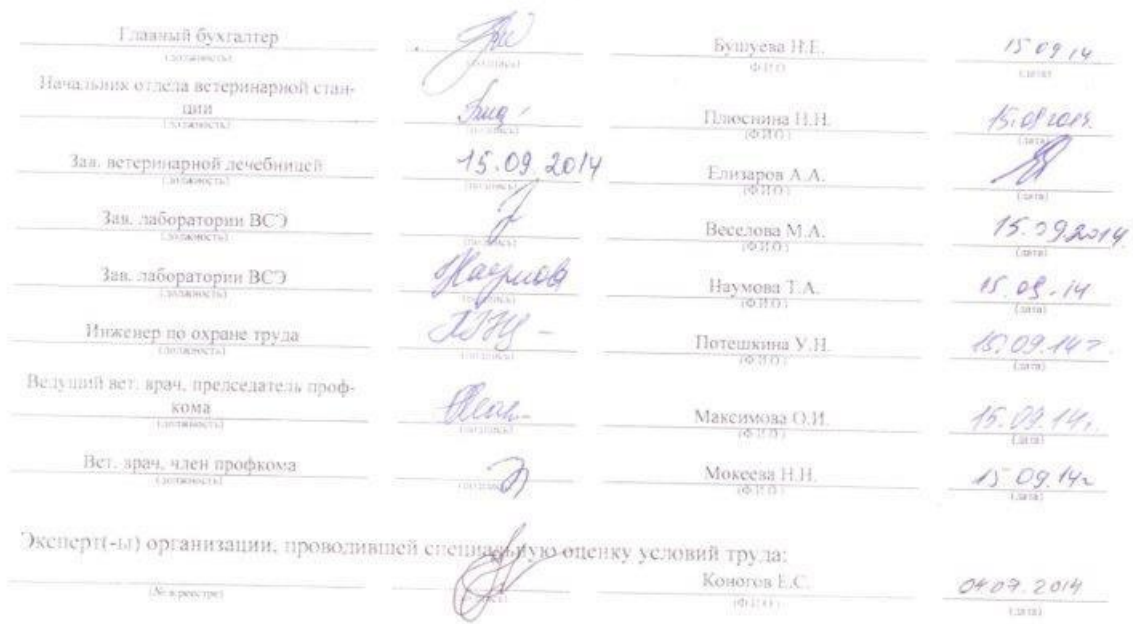 Главный бухгалтер Бушуева Н.Е. 15 09 14
(должность) (подпись) (Ф.И.О.) (дата)
Начальник отдела ветеринарной стан-
ции Плюснина Н.Н. 15.09 2014.
(должность) (подпись) (Ф.И.О.) (дата)
Зав. ветеринарной лечебницей 15.09.2014 Елизаров А.А.
(должность) (подпись) (Ф.И.О.) (дата)
Зав. лаборатории ВСЭ Веселова М.А. 15.09.2014
(должность) (подпись) (Ф.И.О.) (дата)
Зав. лаборатории ВСЭ Наумова Наумова Т.А. 15.09.14
(должность) (подпись) (Ф.И.О.) (дата)
Инженер по охране труда Потешкина У.Н. 15.09.14 г
(должность) (подпись) (Ф.И.О.) (дата)
Ведущий вет. врач, председатель проф-
кома Максимова О.И. 15.09.14г.
(должность) (подпись) (Ф.И.О.) (дата)
Вет. врач, член профкома Мокеева Н.Н. 15 09.14г
(должность) (подпись) (Ф.И.О.) (дата)
Эксперт(-ы) организации, проводившей специальную оценку условий труда:
Коногов Е.С. 04.07.2014
(№ в реестре) (подпись) (Ф.И.О.) (дата)